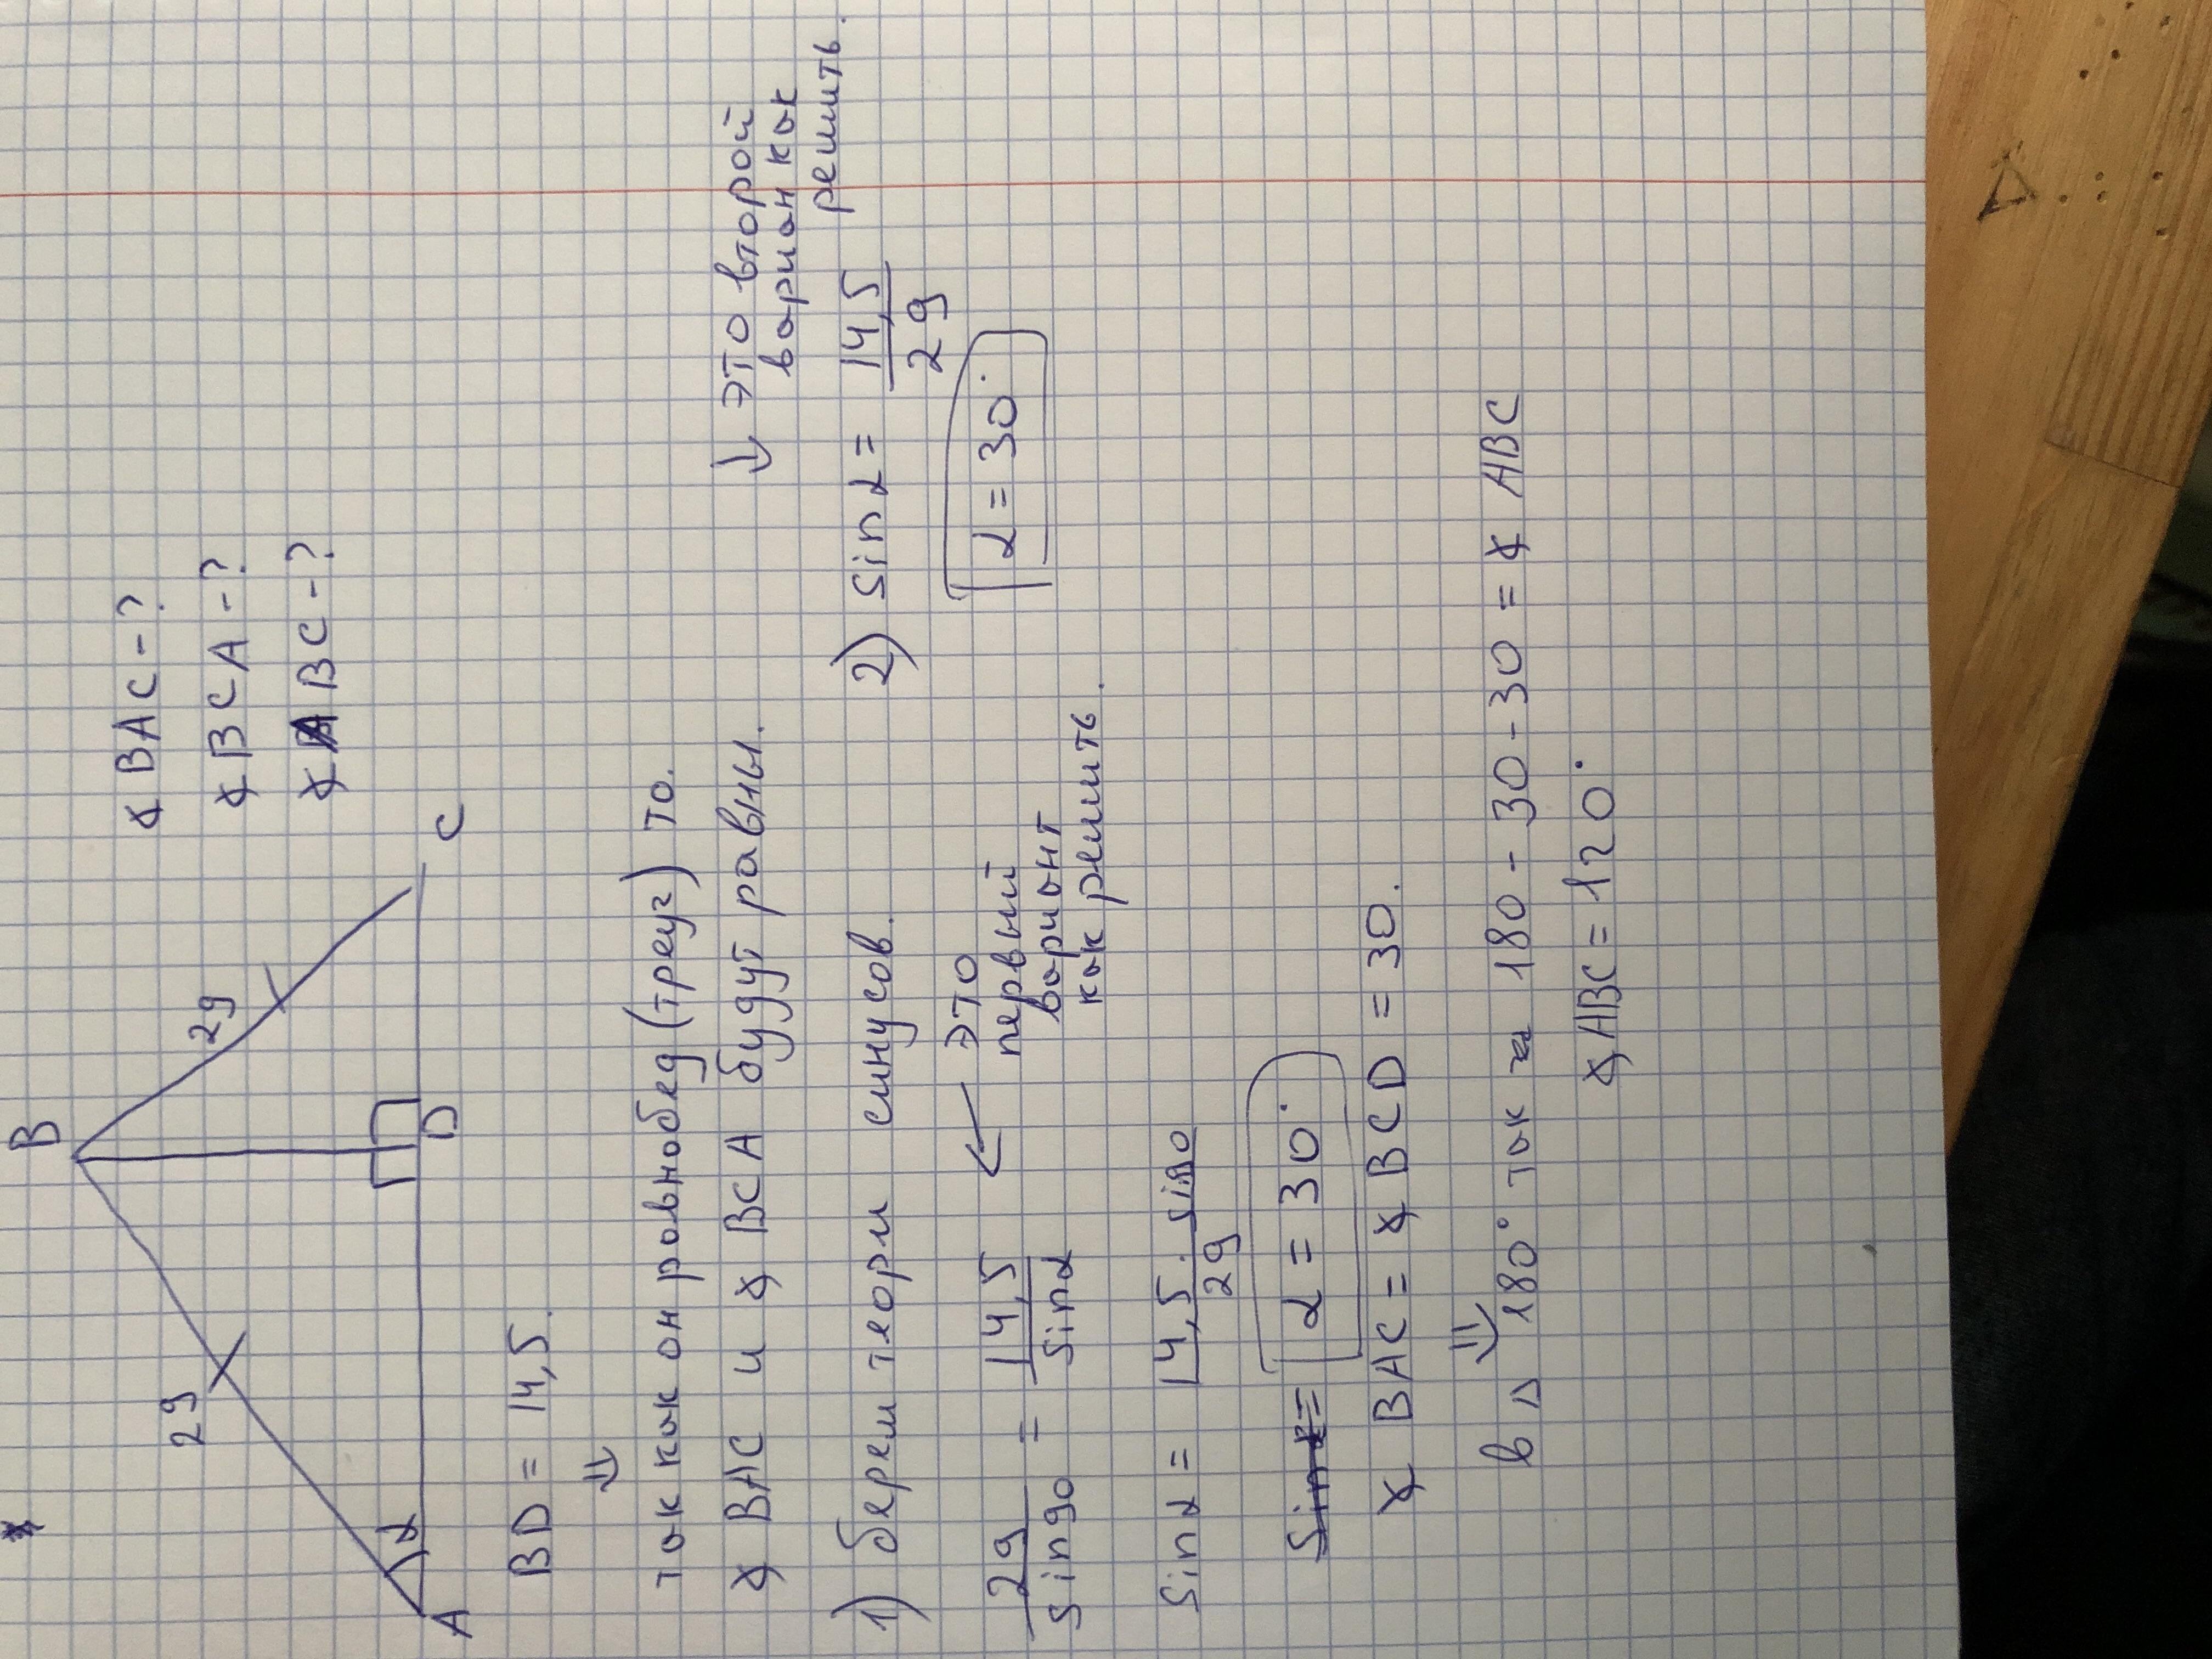 B
29
29
A
α
D
C
∡ BAC - ?
∡ BCA - ?
∡ ABC - ?
BD = 14,5.
⇓
так как он равнобед (треуг) то.
∡ BAC и ∡ BCA будут равны.
1) берем теорм синусов.
29/sin90 = 14,5/sinα
← это
первый
вариант
как решить.
sinα = 14,5 · sin90/29
α = 30°
∡ BAC = ∡ BCD = 30.
⇓
в △ 180° так 180 - 30 - 30 = ∡ ABC
∡ ABC = 120°
↓ это второй
вариан как
решить.
2) sinα = 14,5/29
α = 30°